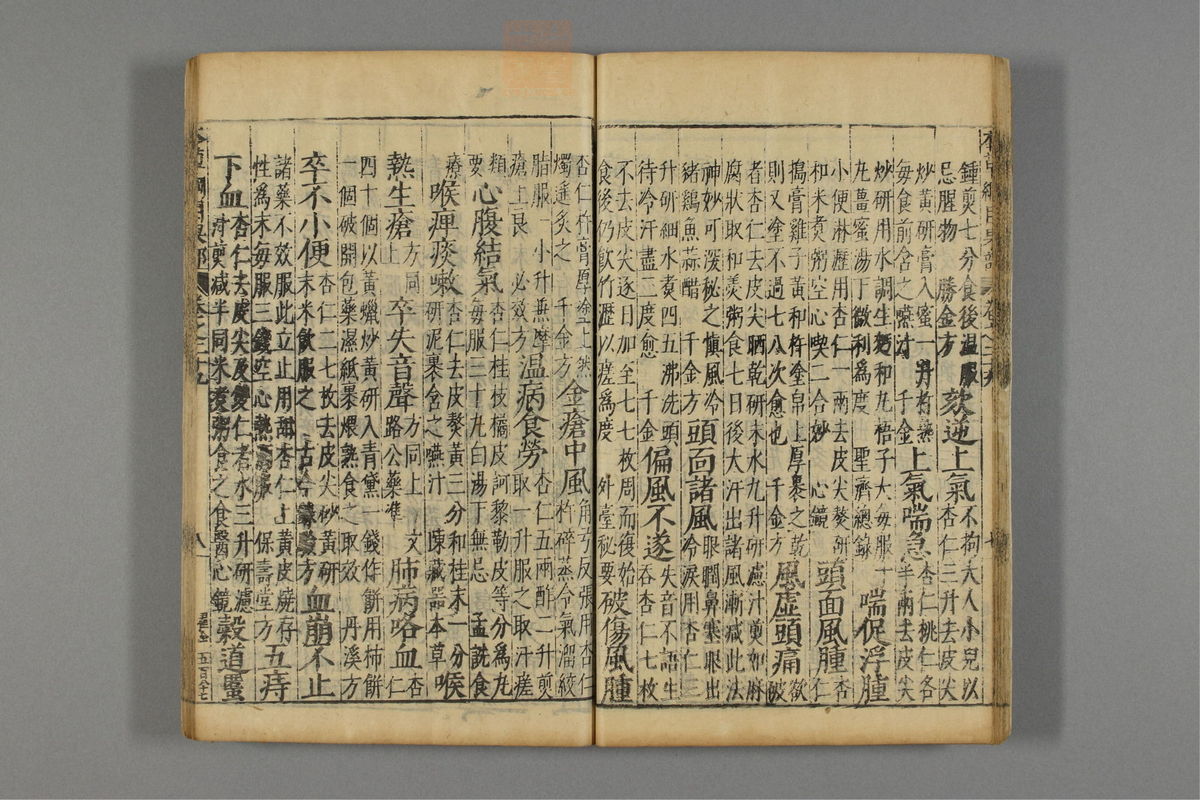 鍾煎七分食後溫服
忌腥物　勝金方
欬逆上氣
不拘大人小兒以
杏仁三升去皮尖
炒黃研膏入蜜一升杵熟
每食前含之嚥汁　千金
上氣喘急
杏仁桃仁各
半兩去皮尖
炒研用水調生麪和丸梧子大每服十
丸薑蜜湯下微利爲度　聖濟總錄
喘促浮腫
小便淋瀝用杏仁一兩去皮尖熬研
和米煮粥空心喫二合妙　心鏡
頭面風腫
杏
仁
搗膏雞子黃和杵塗帛上厚裹之乾
則又塗不過七八次愈也　千金方
風虛頭痛
欲
破
者杏仁去皮尖晒乾研末水九升研濾汁煎如麻
腐狀取和羹粥食七日後大汗出諸風漸減此法
神妙可深秘之愼風冷
豬雞魚蒜醋　千金方
頭面諸風
眼瞤鼻塞眼出
冷淚用杏仁三
升研細水煮四五沸洗頭
待冷汗盡三度愈　千金
偏風不遂
失音不語生
吞杏仁七枚
不去皮尖逐日加至七七枚周而復始
食後仍飲竹瀝以瘥爲度　外臺秘要
破傷風腫
杏仁杵膏厚塗上然
燭遙炙之　千金方
金瘡中風
角弓反張用杏仁
杵碎蒸令氣溜絞
脂服一小升兼摩
瘡上良　必效方
溫病食勞
杏仁五兩酢二升煎
取一升服之取汗瘥
類
要
心腹結氣
杏仁桂枝橘皮訶黎勒皮等分爲丸
每服三十丸白湯下無忌　孟詵食
療
喉痺痰嗽
杏仁去皮熬黃三分和桂末一分
研泥裹含之嚥汁　陳藏器本草
喉
熱生瘡
方同
上
卒失音聲
方同上　文
路公藥準
肺病咯血
杏
仁
四十個以黃蠟炒黃研入青黛一錢作餅用柿餅
一個破開包藥濕紙裹煨熟食之取效　丹溪方
卒不小便
杏仁二七枚去皮尖炒黃研
末米飲服之　古今錄驗方
血崩不止
諸藥不效服此立止用甜杏仁上黃皮燒存
性爲末每服三錢空心熱酒服　保壽堂方
五痔
下血
杏仁去皮尖及雙仁者水三升研濾
汁煎減半同米煮粥食之　食醫心鏡
穀道䘌
本草綱目果部　卷之二十九　八
五百八十七